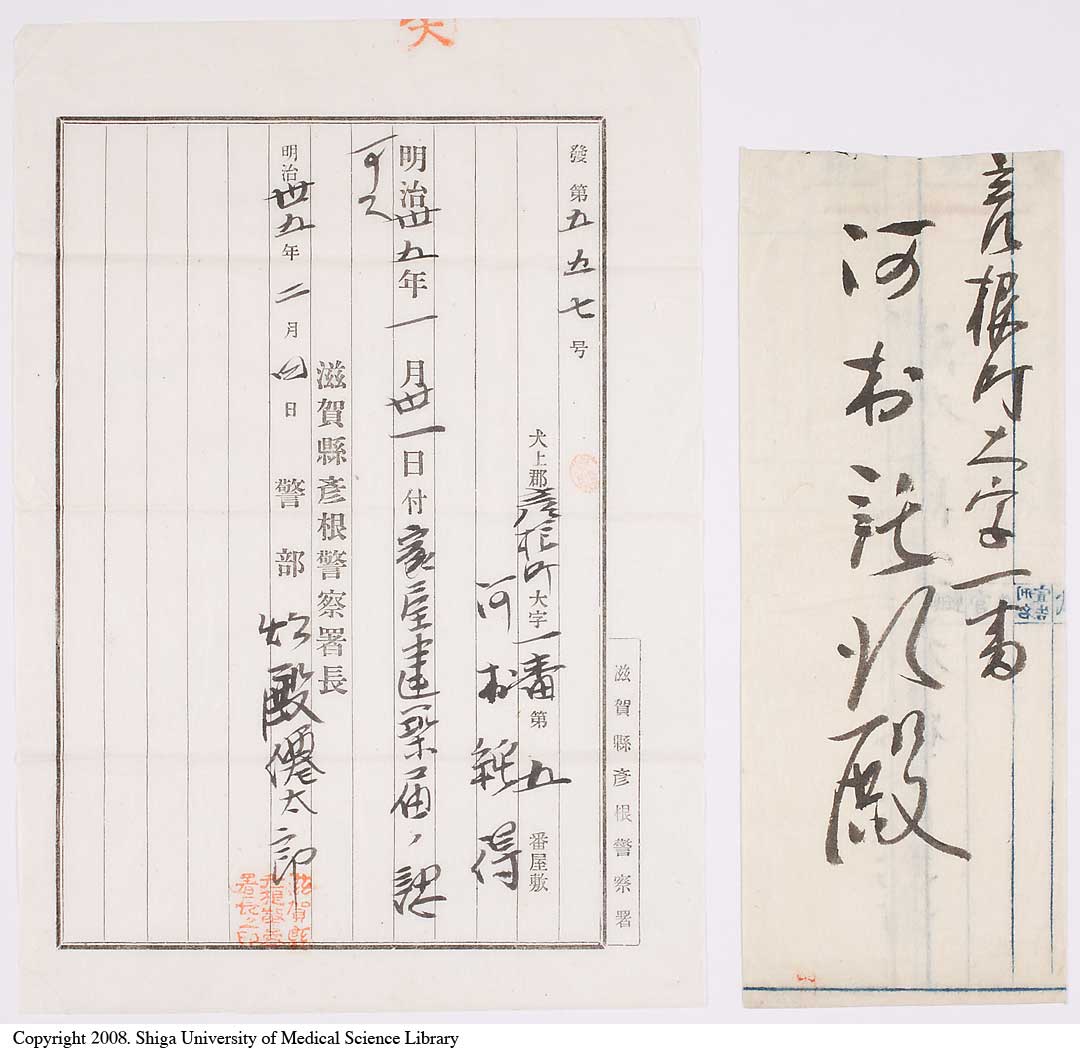 發第五五七号
犬上郡彦根町大字一番第五番屋敷
河村純得
明治卅五年一月卅一日付家屋建築届ノ認
可ス
滋賀縣彦根警察署長
明治卅五年二月四日 警部 殿 太郎
滋賀縣彦根警察署
彦根町大字一番
河村 殿
Copyright 2008. Shiga University of Medical Science Library